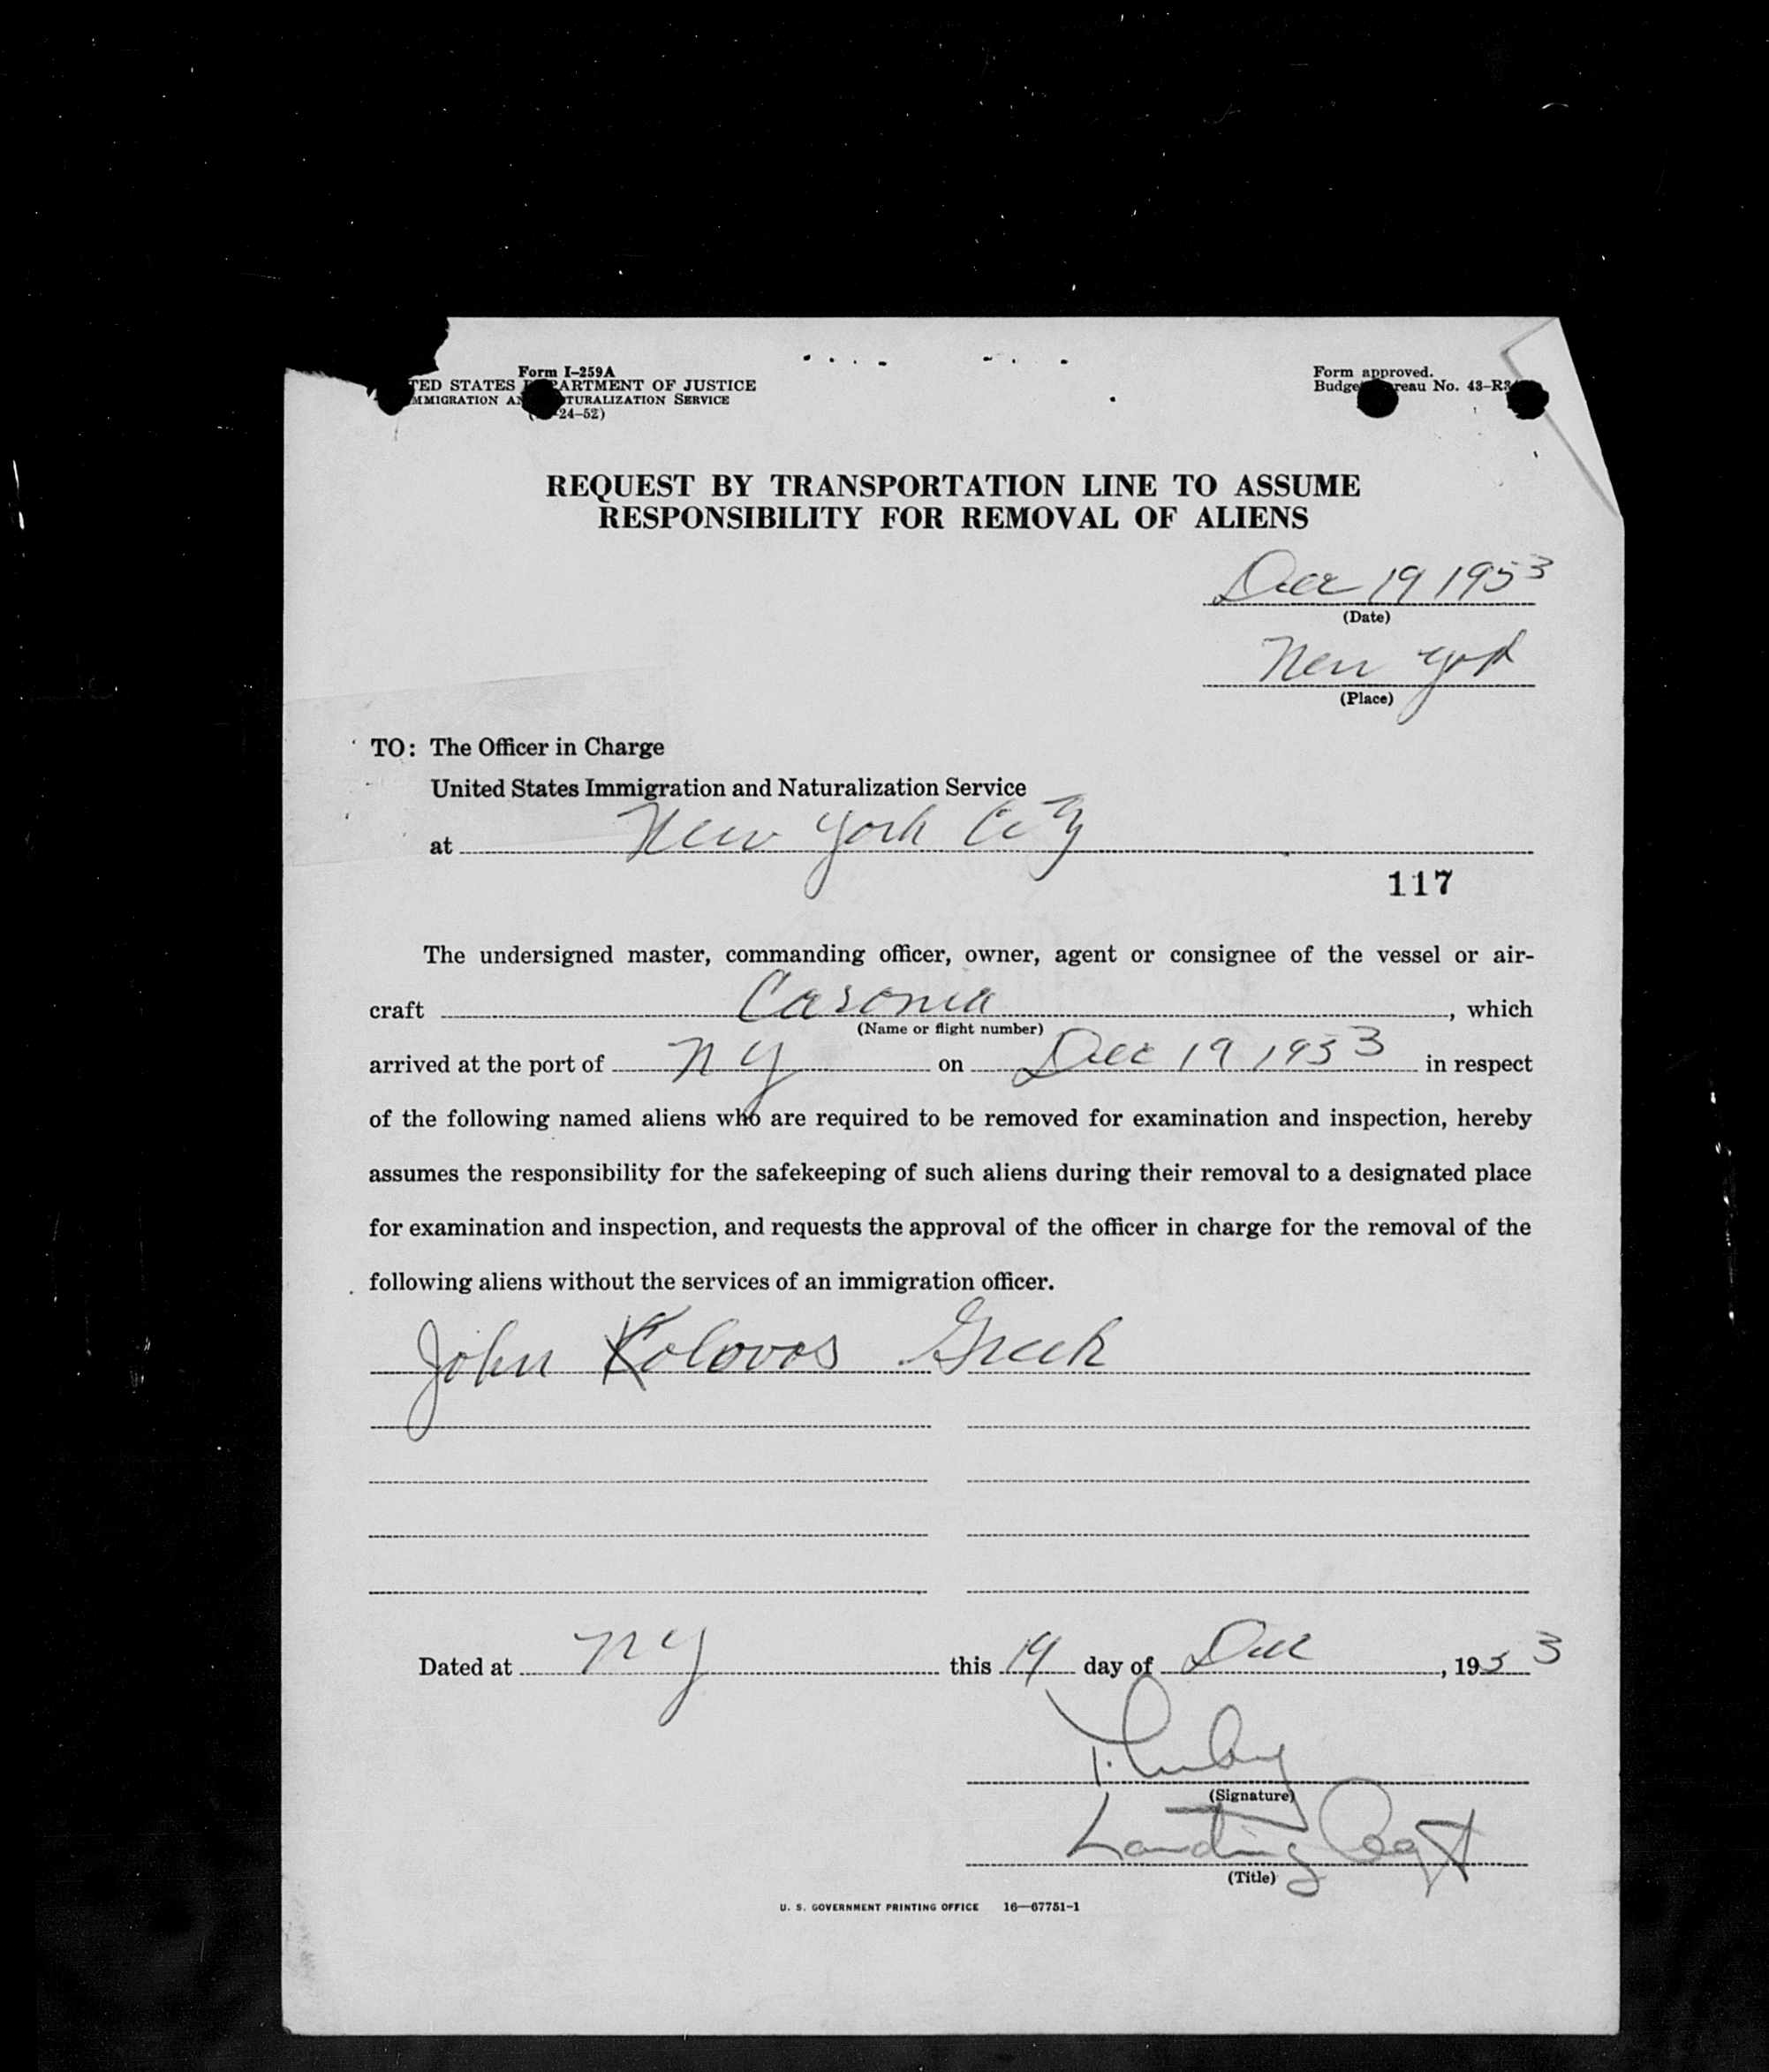 Form I-259A
TED STATES PARTMENT OF JUSTICE
MMIGRATION AN TURALIZATION SERVICE
24-52)
Form approved.
Budge reau No. 43-R3
REQUEST BY TRANSPORTATION LINE TO ASSUME
RESPONSIBILITY FOR REMOVAL OF ALIENS
Dec 19 1953
(Date)
New York
(Place)
TO: The Officer in Charge
United States Immigration and Naturalization Service
at New York City
117
The undersigned master, commanding officer, owner, agent or consignee of the vessel or air-
craft Caronia, which
(Name or flight number)
arrived at the port of NY on Dec 19 1953 in respect
of the following named aliens who are required to be removed for examination and inspection, hereby
assumes the responsibility for the safekeeping of such aliens during their removal to a designated place
for examination and inspection, and requests the approval of the officer in charge for the removal of the
following aliens without the services of an immigration officer.
John Kolovos Greek
Dated at NY this 19 day of Dec, 1953
(Signature)
Landing Agt
(Title)
U. S. GOVERNMENT PRINTING OFFICE 16—67751-1